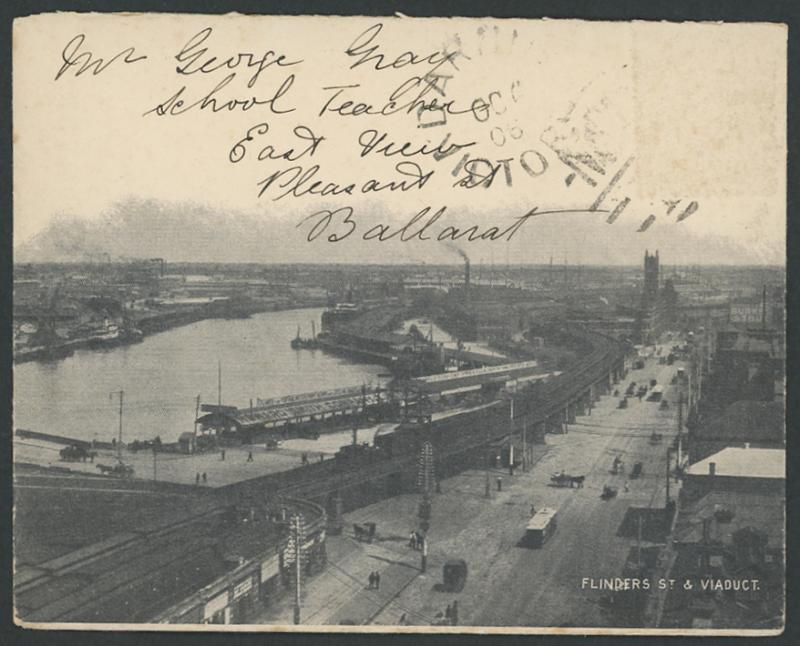 Mr George Gray
School Teacher
East View
Pleasant St
Ballarat
VICTORIA
FLINDERS ST & VIADUCT.